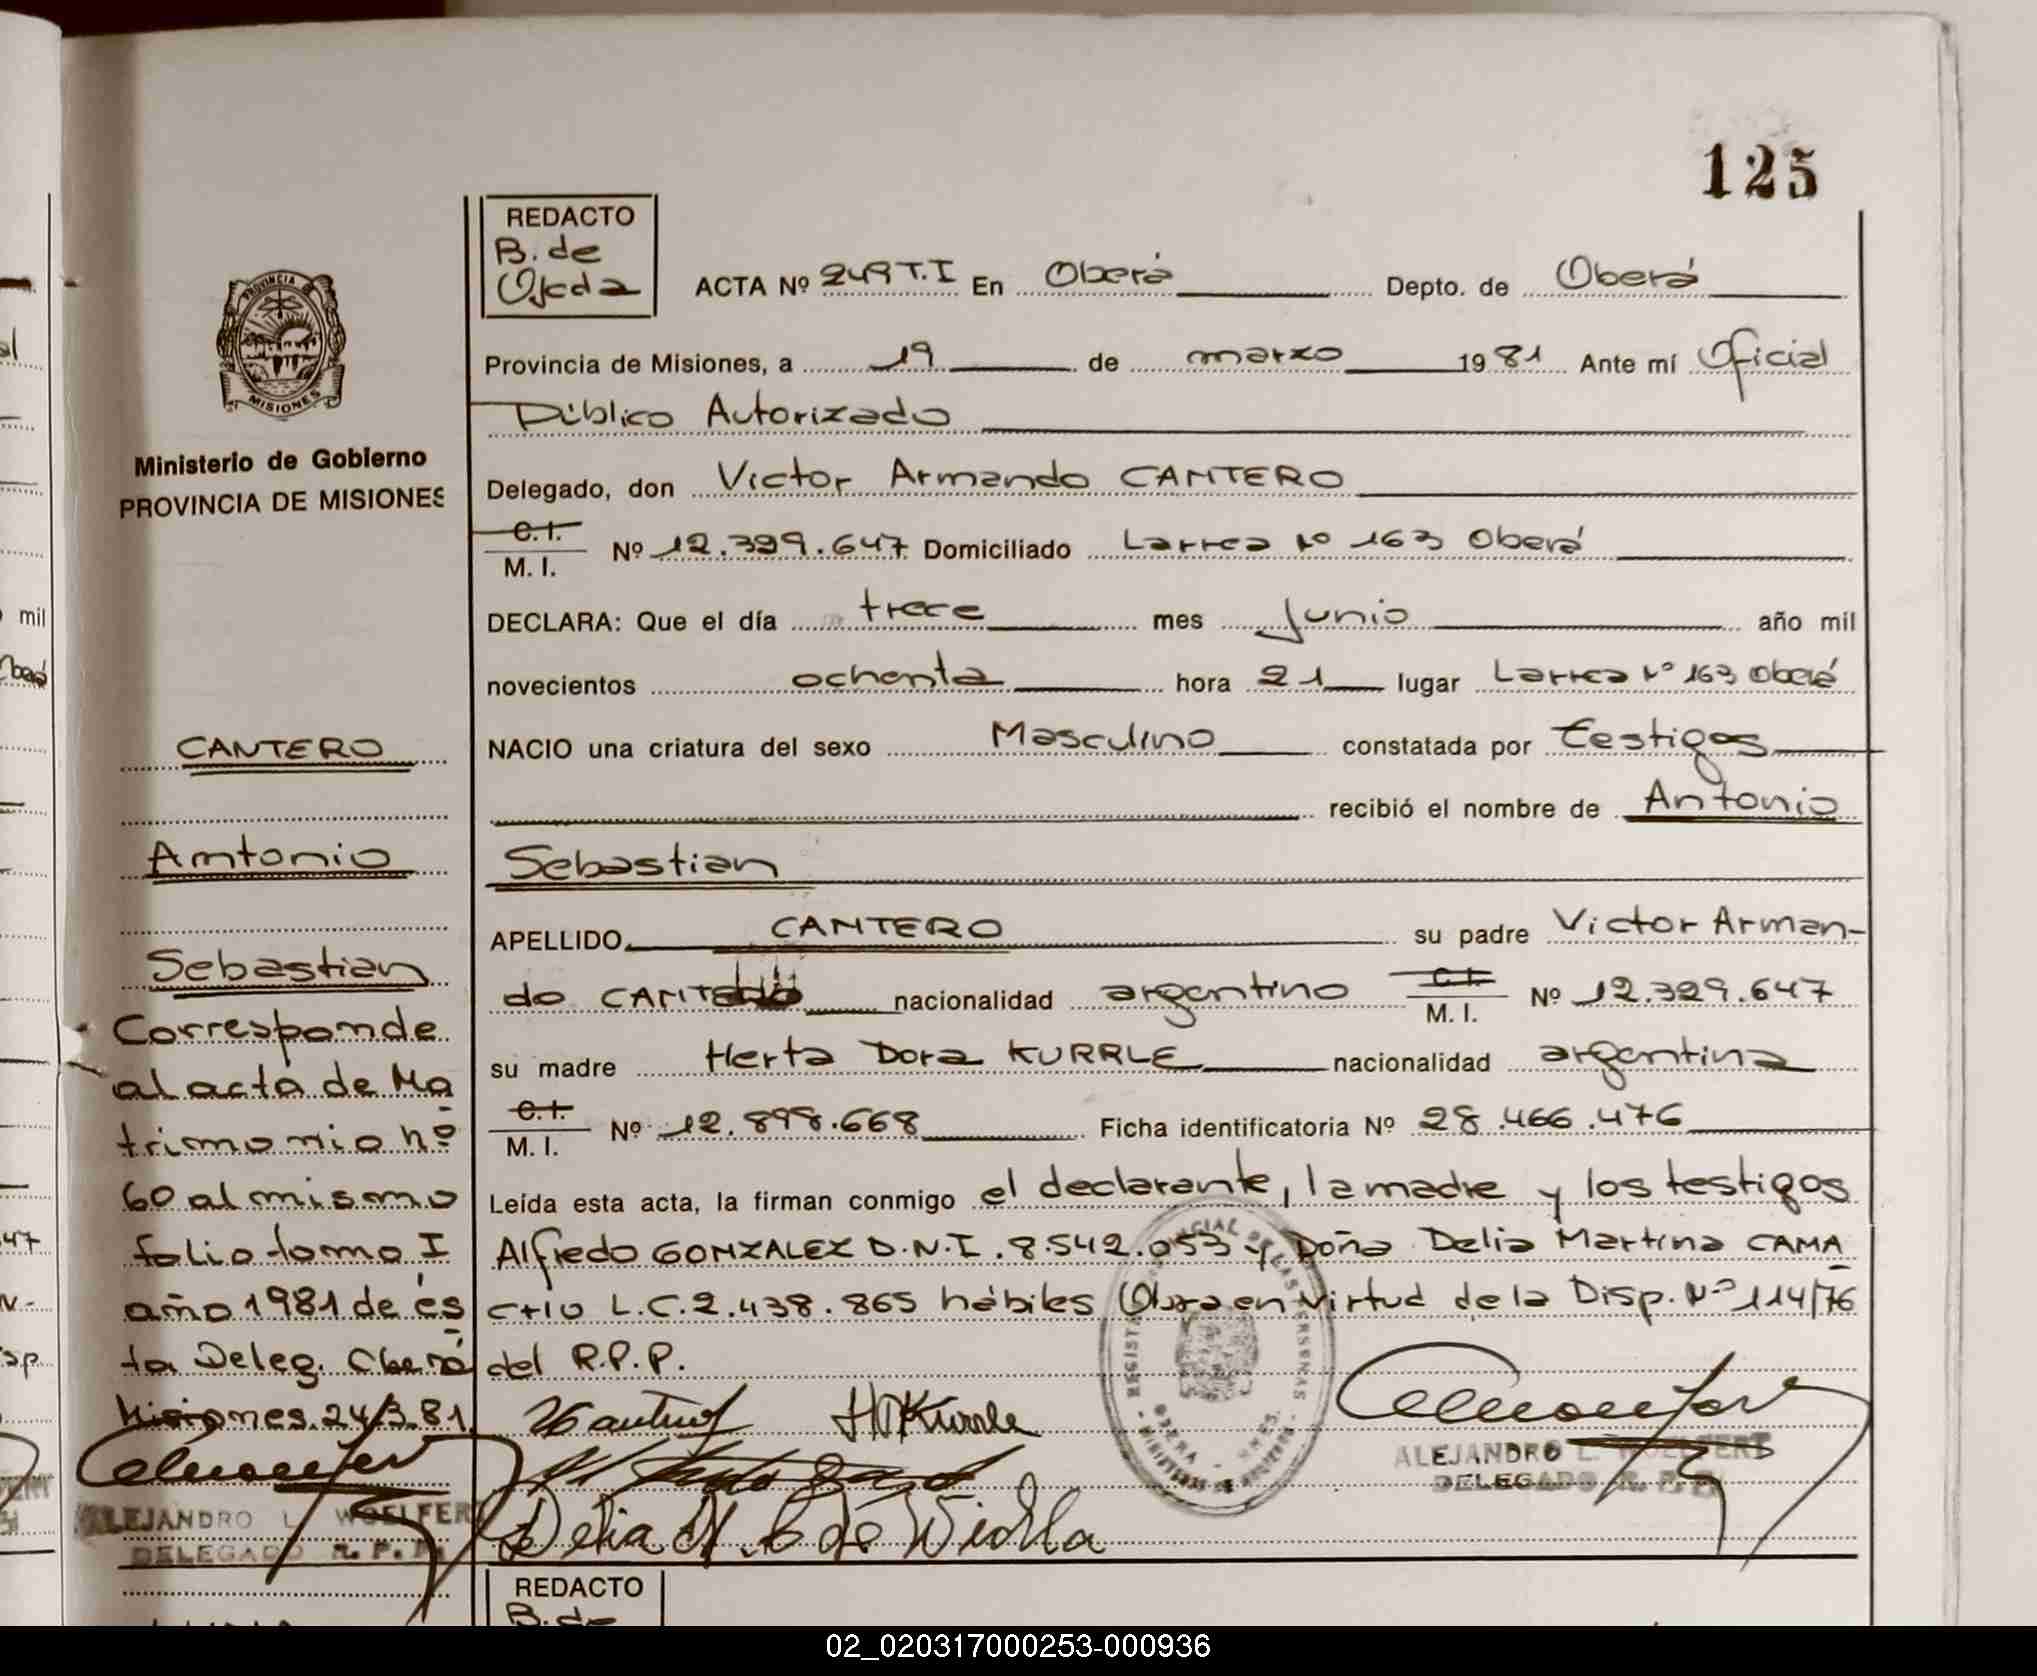 125
REDACTO
B. de
Ojeda
ACTA Nº 249 T.I En Oberá Depto. de Oberá
Provincia de Misiones, a 19 de marzo 1981 Ante mí Oficial
Público Autorizado
Delegado, don Victor Armando CANTERO
C.I.
M. I. Nº 12.329.647 Domiciliado Larrea Nº 163 Oberá
DECLARA: Que el día trece mes Junio año mil
novecientos ochenta hora 21 lugar Larrea Nº 163 Oberá
NACIO una criatura del sexo Masculino constatada por testigos
recibió el nombre de Antonio
Sebastian
APELLIDO CANTERO su padre Victor Arman-
do CANTERO nacionalidad argentino C.I. M. I. Nº 12.329.647
su madre Herta Dora KURRLE nacionalidad argentina
C.I.
M. I. Nº 12.898.668 Ficha identificatoria Nº 28.466.476
Leída esta acta, la firman conmigo el declarante, la madre y los testigos
Alfredo GONZALEZ D.N.I. 8.542.053 y Doña Delia Martina CAMA
CHO L.C. 2.438.865 hábiles Obra en Virtud de la Disp. Nº 114/76
del R.P.P.
HDKurrle
Delia M. C de Violla
ALEJANDRO L. WOELFERT
DELEGADO R. P. P.
PROVINCIA D
MISIONES
Ministerio de Gobierno
PROVINCIA DE MISIONES
CANTERO
Antonio
Sebastian
Corresponde
al acta de Ma
trimonio nº
60 al mismo
folio tomo I
año 1981 de és
ta Deleg. Oberá
Misiones 24/3.81
ALEJANDRO L. WOELFERT
DELEGADO R. P. P.
REDACTO
B. de
mil
02_020317000253-000936